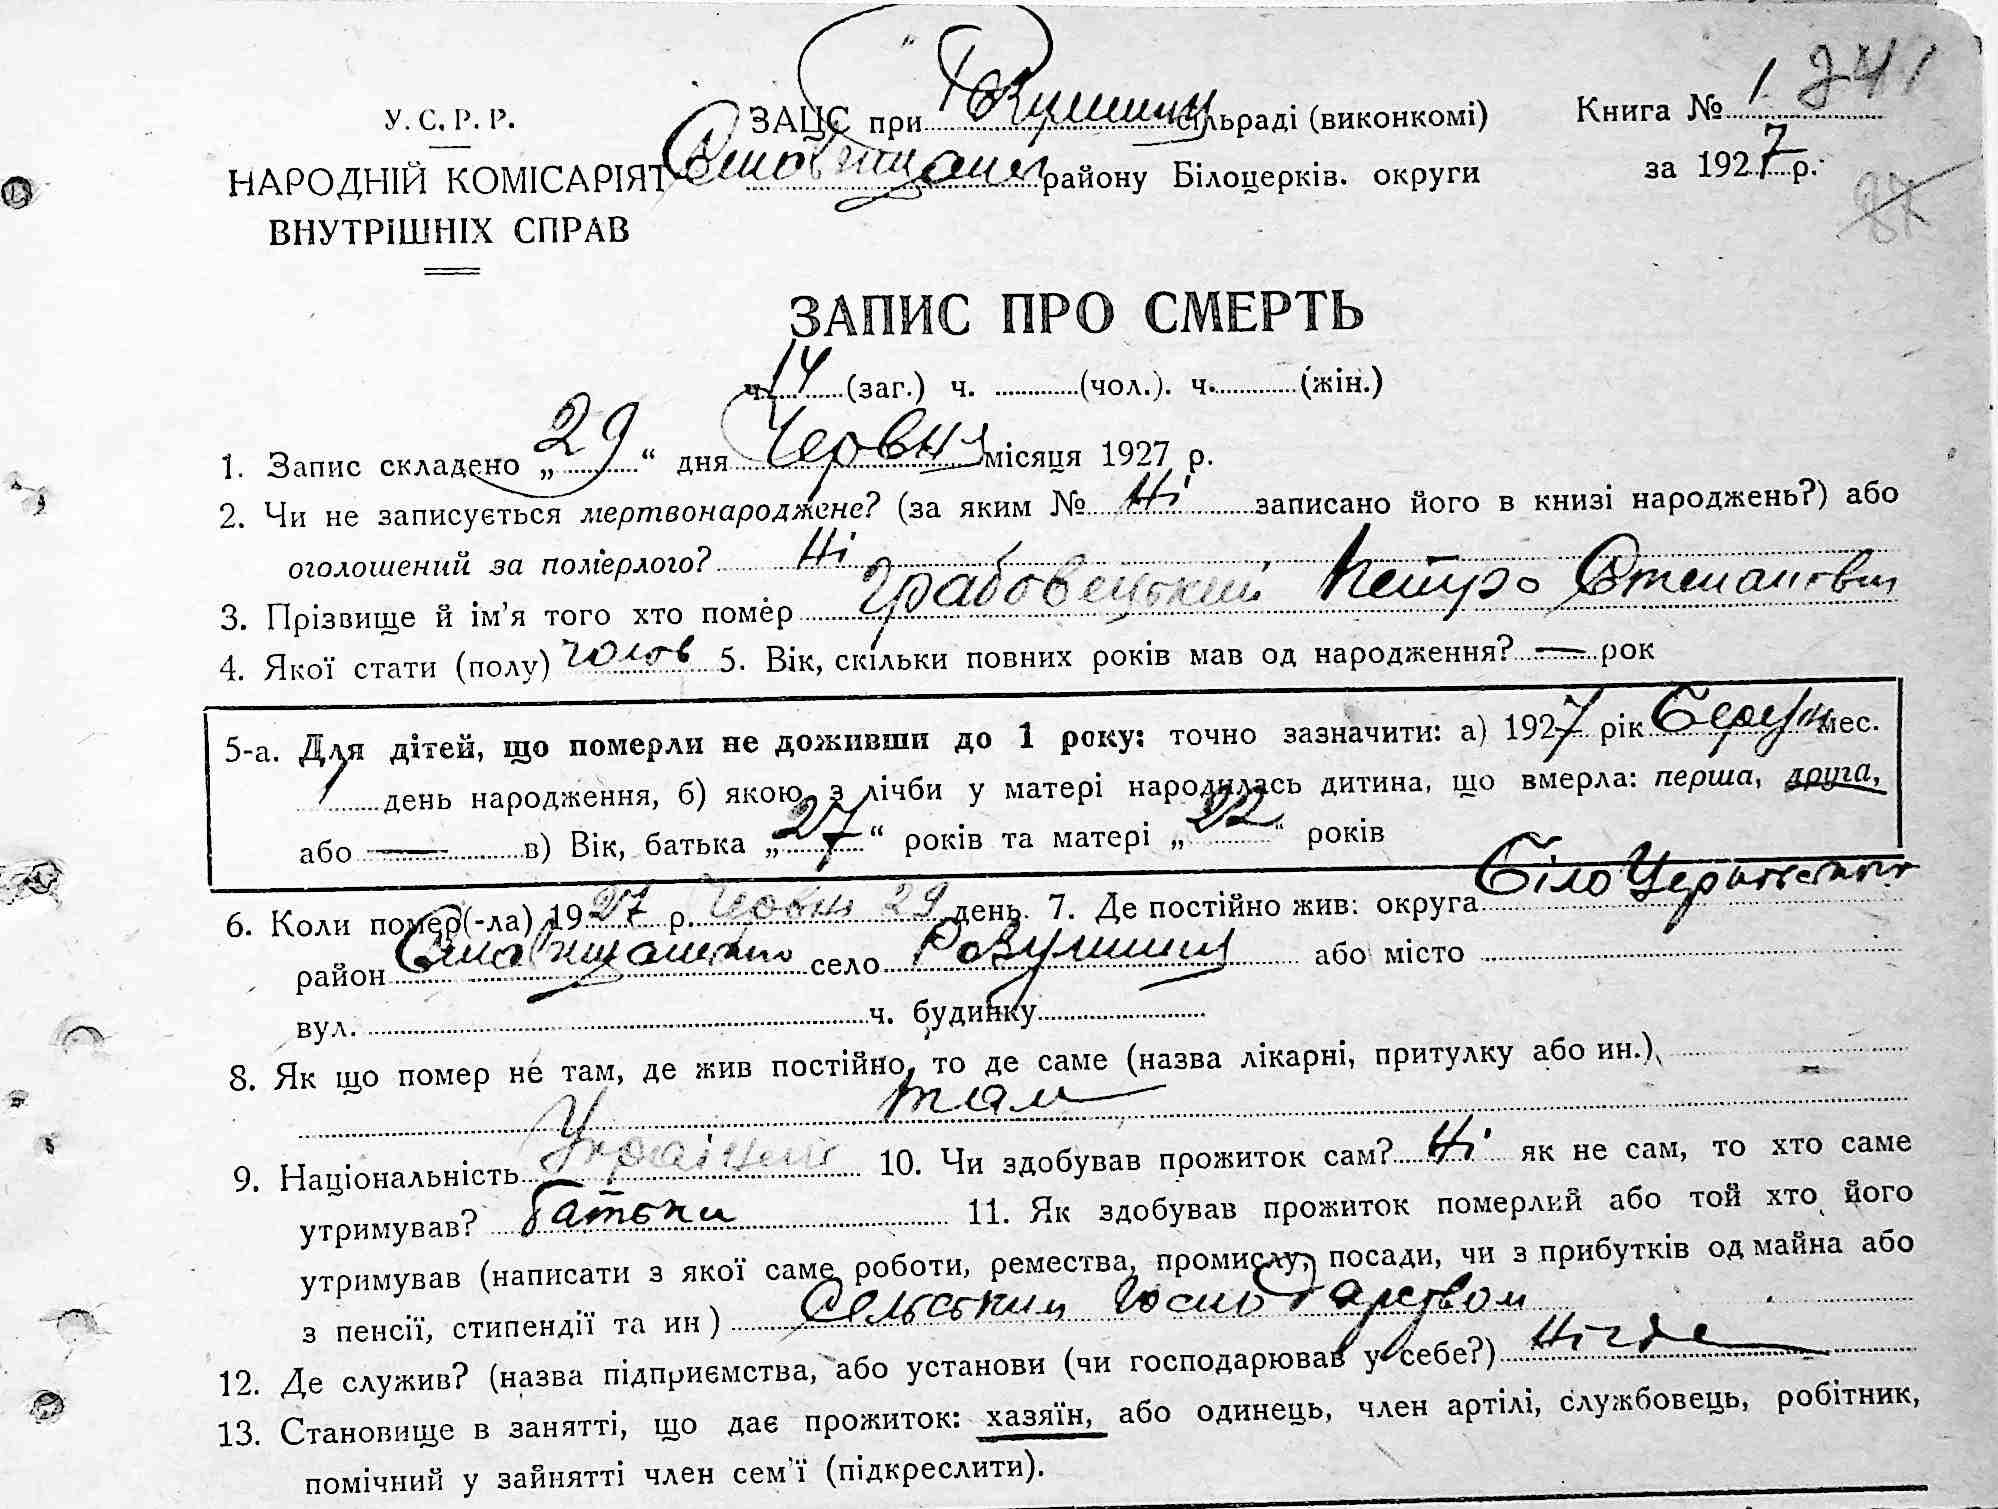 У. С. Р. Р.
НАРОДНІЙ КОМІСАРІЯТ
ВНУТРІШНІХ СПРАВ
ЗАЦС при сільраді (виконкомі)
району Білоцерків. округи
Книга № 1 241
за 1927 р.
87
ЗАПИС ПРО СМЕРТЬ
ч. 14 (заг.) ч. (чол.). ч. (жін.)
1. Запис складено „ 29 “ дня Червня місяця 1927 р.
2. Чи не записується мертвонароджене? (за яким № Ні записано його в книзі народжень?) або
оголошений за померлого? Ні
3. Прізвище й ім'я того хто помер Грабовецький Петро Степанович
4. Якої стати (полу) чолов 5. Вік, скільки повних років мав од народження? — рок
5-а. Для дітей, що померли не доживши до 1 року: точно зазначити: а) 1927 рік мес.
1 день народження, б) якою з лічби у матері народилась дитина, що вмерла: перша, друга,
або — в) Вік, батька „ 27 “ років та матері „ 22 “ років
6. Коли помер(-ла) 1927 р. Червня 29 день. 7. Де постійно жив: округа БілоЦерковська
район село або місто
вул. ч. будинку
8. Як що помер не там, де жив постійно, то де саме (назва лікарні, притулку або ин.)
там
9. Національність Українець 10. Чи здобував прожиток сам? Ні як не сам, то хто саме
утримував? Батьки 11. Як здобував прожиток померлий або той хто його
утримував (написати з якої саме роботи, ремества, промислу, посади, чи з прибутків од майна або
з пенсії, стипендії та ин) Сельським Господарством
12. Де служив? (назва підприємства, або установи (чи господарював у себе?) Нігде
13. Становище в занятті, що дає прожиток: хазяїн, або одинець, член артілі, службовець, робітник,
помічний у зайнятті член сем'ї (підкреслити).